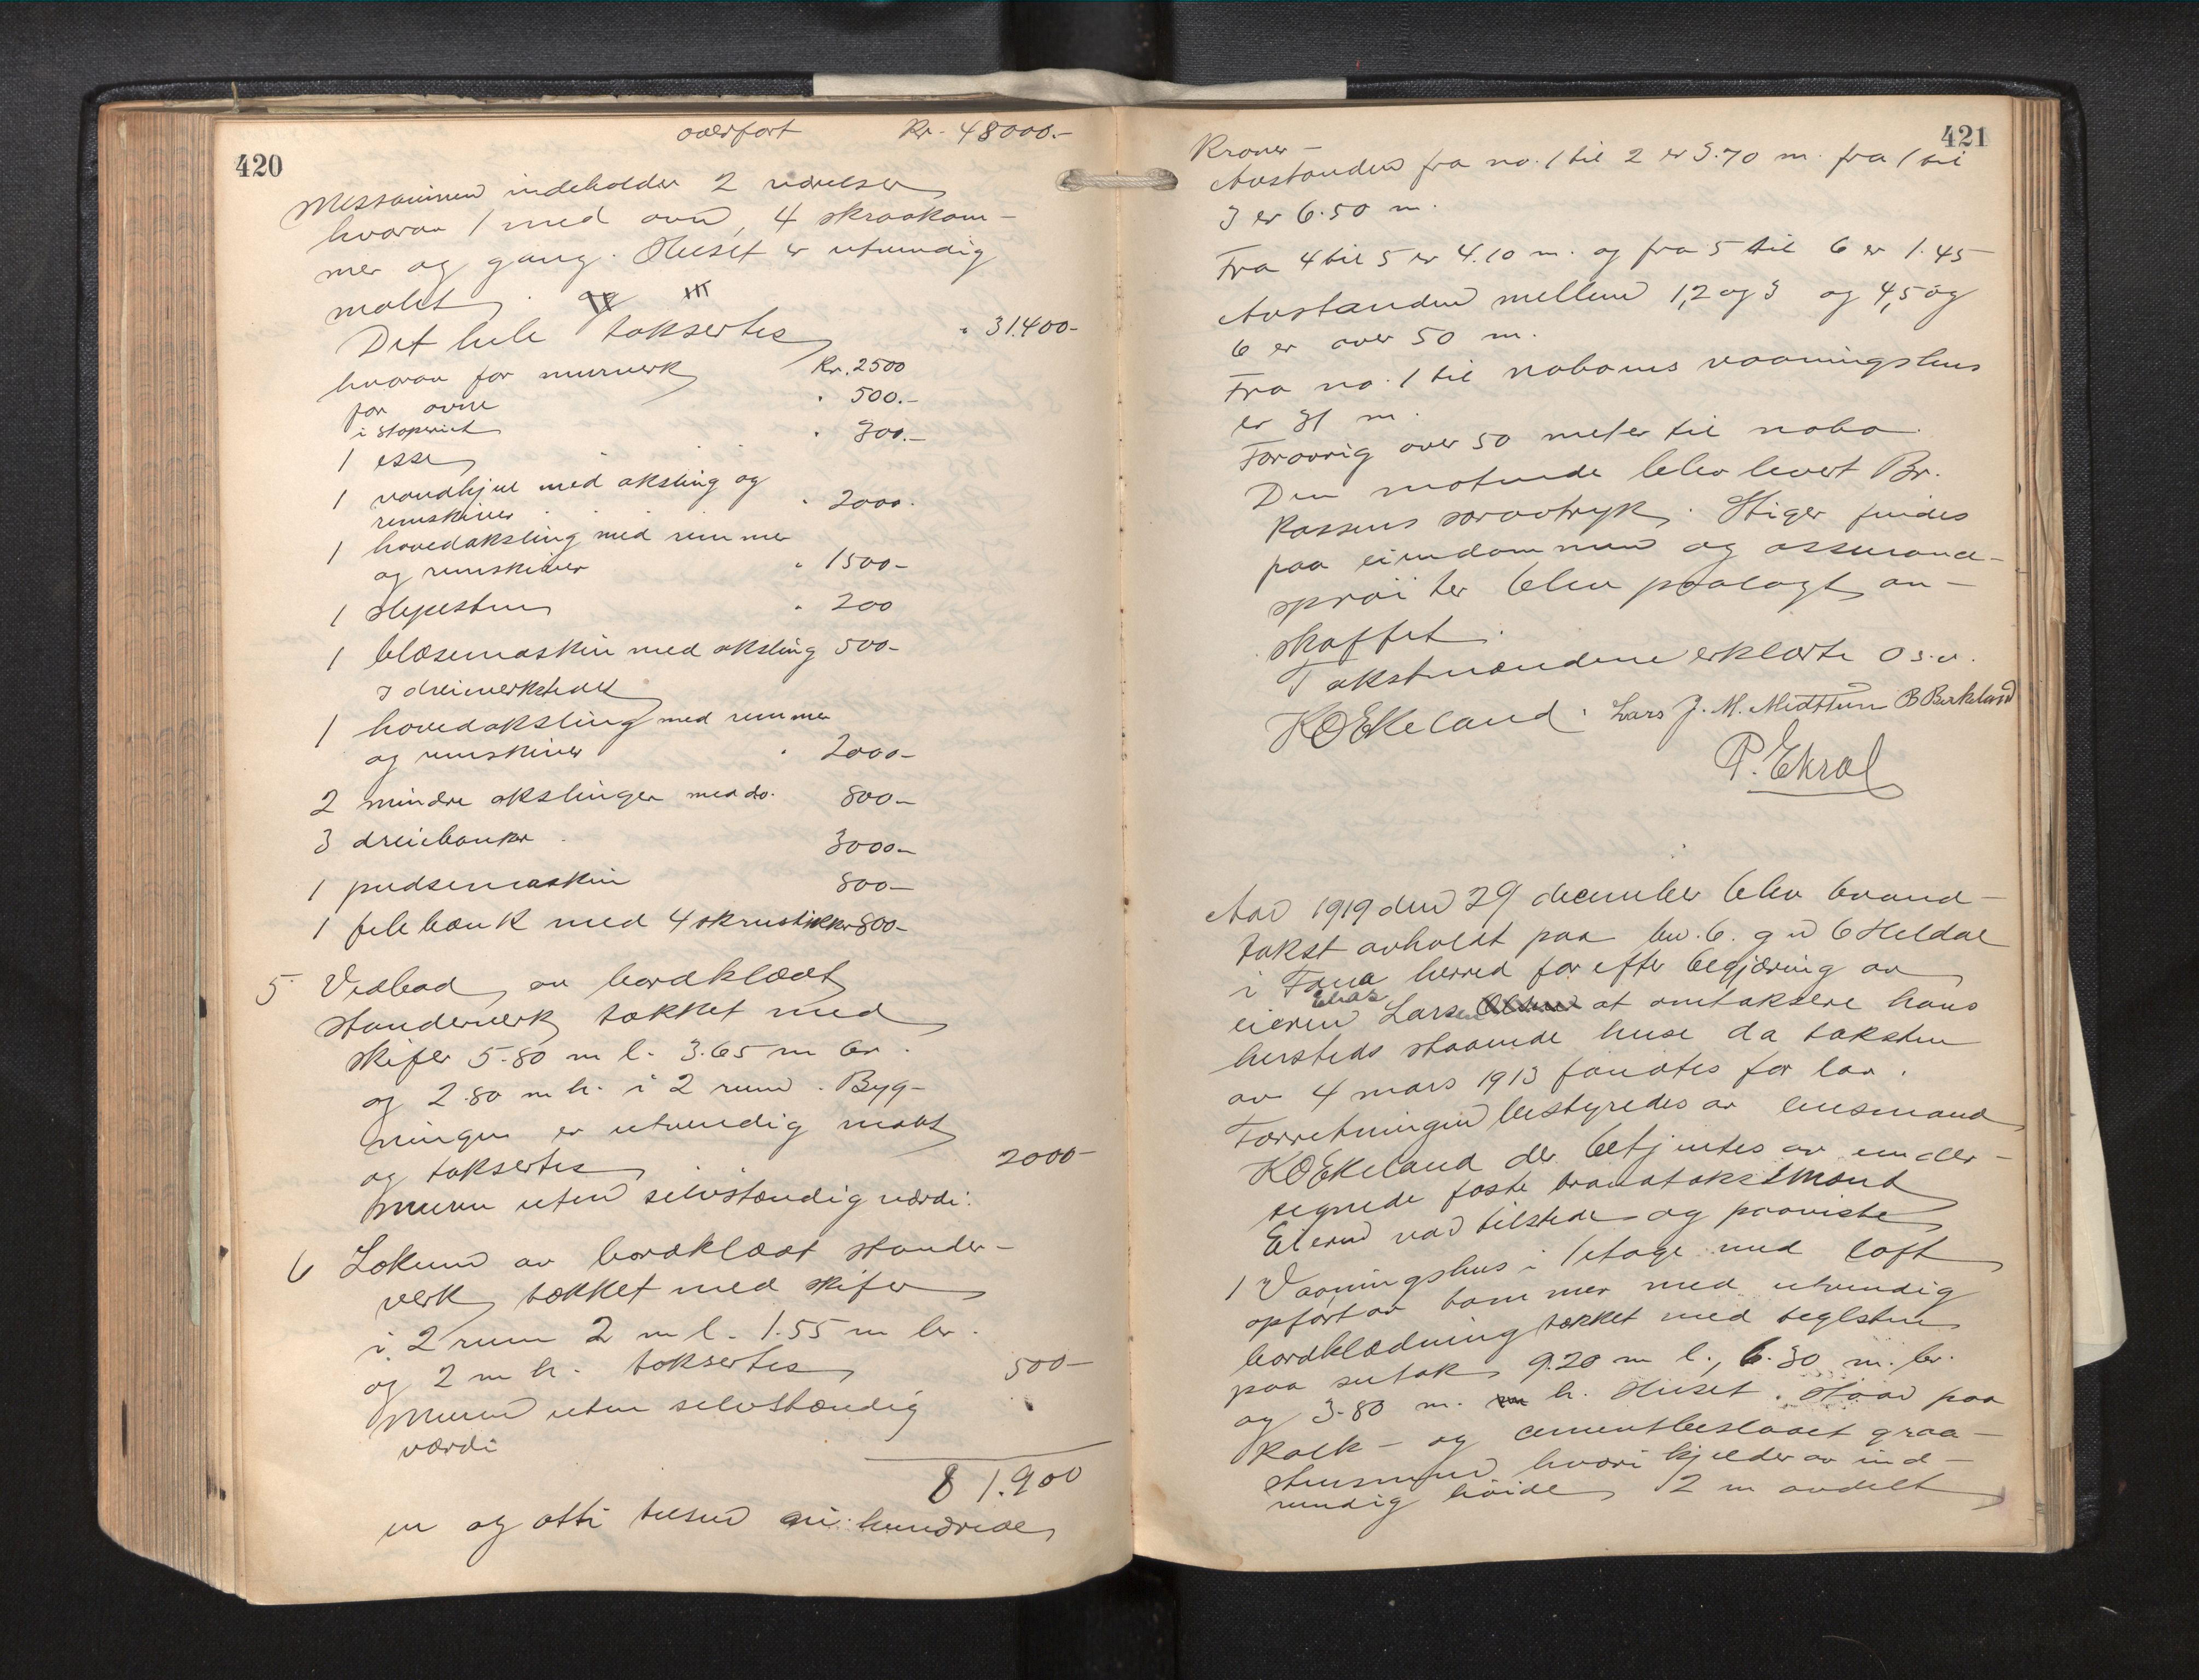 420
overført Kr. 48000.-
Messaninen indeholder 2 værelser
hvorav 1 med ovn, 4 skraakam-
mer og gang. Huset er utvendig
malet.
Det hele taksertes " 31400-
hvorav for murverk Kr. 2500
for ovne " 500.-
i støperiet
1 esse " 300.-
1 vandhjul med aksling og
remskiver " 2000.
1 hovedaksling med remmer
og remskiver " 1500-
1 slipesten " 200
1 blæsemaskin med aksling 500-
I dreiverkstedet
1 hovedaksling med remmer
og remskiver " 2000-
2 mindre akslinger med do. 800-
3 dreiebanker 3000-
1 pudsemaskin 800-
1 filebænk med 4 skrustikker 800-
5 Vedbod av bordklædt
standerverk tækket med
skifer 5.80 m l. 3.65 m br.
og 2.80 m h. i 2 rum. Byg-
ningen er utvendig malt
og taksertes 2000-
Muren uten selvstændig værdi.
6 Lokum av bordklædt stander-
verk tækket med skifer
i 2 rum 2 m l. 1.55 m br.
og 2 m h. taksertes 500-
Muren uten selvstændig
værdi
81.900
en og otti tusen ni hundrede
421
Kroner-
Avstanden fra no. 1 til 2 er 3.70 m. fra 1 til
3 er 6.50 m.
Fra 4 til 5 er 4.10 m. og fra 5 til 6 er 1.45
Avstanden mellem 1,2 og 3 og 4,5 og
6 er over 50 m.
Fra no. 1 til naboens vaaningshus
er 31 m.
Forøvrig over 50 meter til nabo.
Den møtende blev levert Br.
Kassens særavtryk. Stiger findes
paa eiendommen og assurance-
sprøiter blev paalagt an-
skaffet.
Takstmændene erklærte o s. v.
KOEkeland. Lars J. M. Midttun B Birkeland
P. Ekral
Aar 1919 den 29 december blev brand-
takst avholdt paa br. 6. g n 6 Heldal
i Fana herred for efter begjæring av
eieren Elias Larsen at omtaksere hans
hersteds staaende huse da taksten
av 4 mars 1913 fandtes for lav.
Forretningen bestyredes av lensmand
KOEkeland der betjentes av under-
tegnede faste brandtakstmænd
Eieren var tilstede og paaviste
1 Vaaningshus i 1 etage med loft
opført av tømmer med utvendig
bordklædning tækket med teglsten
paa sutak 9.20 m l., 6.30 m. br.
og 3.80 m. h. Huset staar paa
kalk- og cementbeslaaet graa-
stensmur hvori kjelder av ind-
vendig høide 2 m avdelt